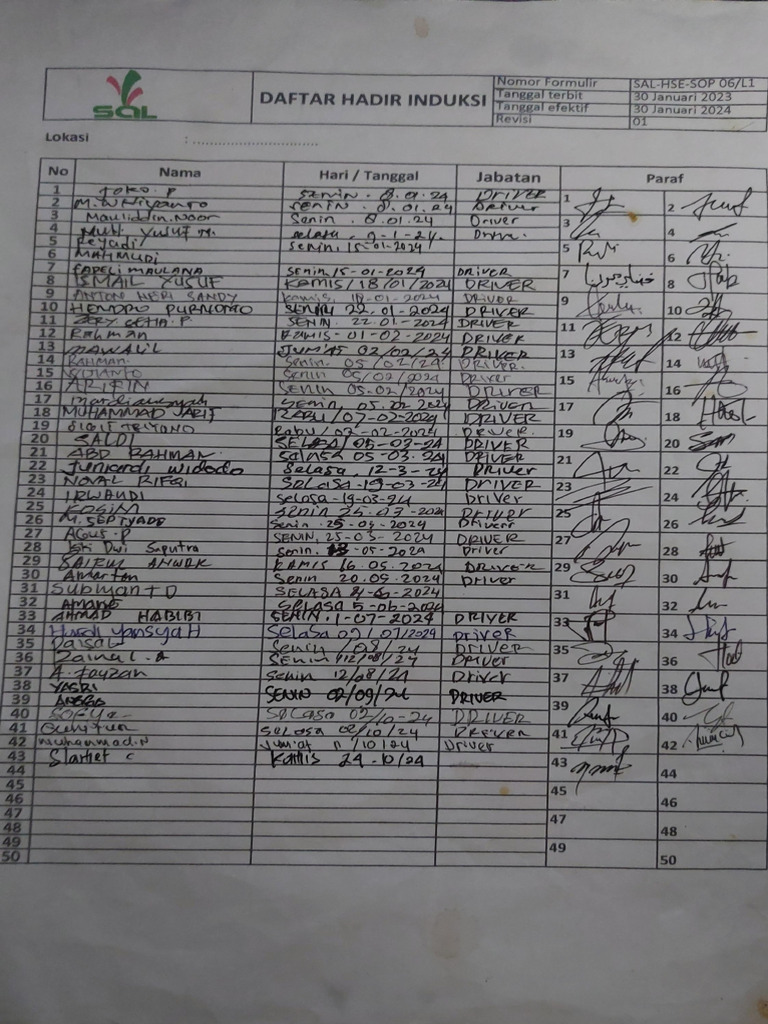 SAL
DAFTAR HADIR INDUKSI
Nomor Formulir SAL-HSE-SOP 06/L1
Tanggal terbit 30 Januari 2023
Tanggal efektif 30 Januari 2024
Revisi 01
Lokasi : ..............................
No Nama Hari / Tanggal Jabatan Paraf
1 JOKO. P SENIN . 8.01.24 DRIVER 1
2 SENIN . 8.01.24 Driver 2
3 Mauliddin.Noor Senin . 8.01.24 Driver 3
4 Muh. Yusuf M. selasa . 9-1-24. 4
5 Reyadi senin, 15-01-2024 5
6 MAHMUDI 6
7 FADELI MAULANA SENIN, 15-01-2024 DRIVER 7
8 ISMAIL YUSUF KAMIS/18/01/2024 DRIVER 8
9 ANTON HERI SANDY Kamis, 2024 DRIVER 9
10 HENDRO PURNOMO SENIN 22.01.2024 DRIVER 10
11 SENIN . 22.01-2024 DRIVER 11
12 Rahman KAMIS-01-02-2024 DRIVER 12
13 MAWALIL JUM'AT 02/02/24 DRIVER 13
14 RAHMAN. Senin. 05/02/24 DRIVER. 14
15 Senin 05/02/2024 Driver 15
16 ARIFIN SENIN 05-02/2024 DRIVER 16
17 Senin, 05.02.2024 Driver 17
18 MUHAMMAD JARIF RABU/07-02-2024 DRIVER 18
19 Rabu/ 2024 DRIVER. 19
20 SALDI SELASA 05-03-24 DRIVER 20
21 ABD RAHMAN. SELASA 05-03.24 DRIVER 21
22 Juniardi Widodo Selasa, 12-3-24 Driver 22
23 NOVAL RIFQI SELASA-19-03-24 DRIVER 23
24 IRWANDI selasa-19-03-24 Driver 24
25 KOSIM Senin 25-03-2024 DRIVER 25
26 M. SEPTYADE Senin 2024 Driver 26
27 AGUS.P SENIN, 25-03-2024 DRIVER 27
28 Dwi Saputra Senin. 13-05-2024 Driver 28
29 SAIFUL ANWAR KAMIS 16.05.2024 DRIVER 29
30 Amartan Senin 20.05.2024 Driver 30
31 SUBIYANTO SELASA 2024 31
32 AMANG SELASA 5-06-2024 32
33 AHMAD HABIBI SENIN, 1-07-2024 DRIVER 33
34 Hardi yansyah Selasa 02/07/2024 Driver 34
35 Faisal Senin /08/24 DRIVER 35
36 Zainul.A SENIN 12/08/24 Driver 36
37 A. Fauzan Senin 12/08/24 Driver 37
38 YASRI SENIN 02/09/24 DRIVER 38
39 ANGGA 39
40 SOFYA SELASA 02/10-24 DRIVER 40
41 SELASA 02/10/24 DRIVER 41
42 Muhammad.N Jum'at 11/10/24 Driver 42
43 Kamis 24-10/24 43
44 44
45 45
46 46
47 47
48 48
49 49
50 50